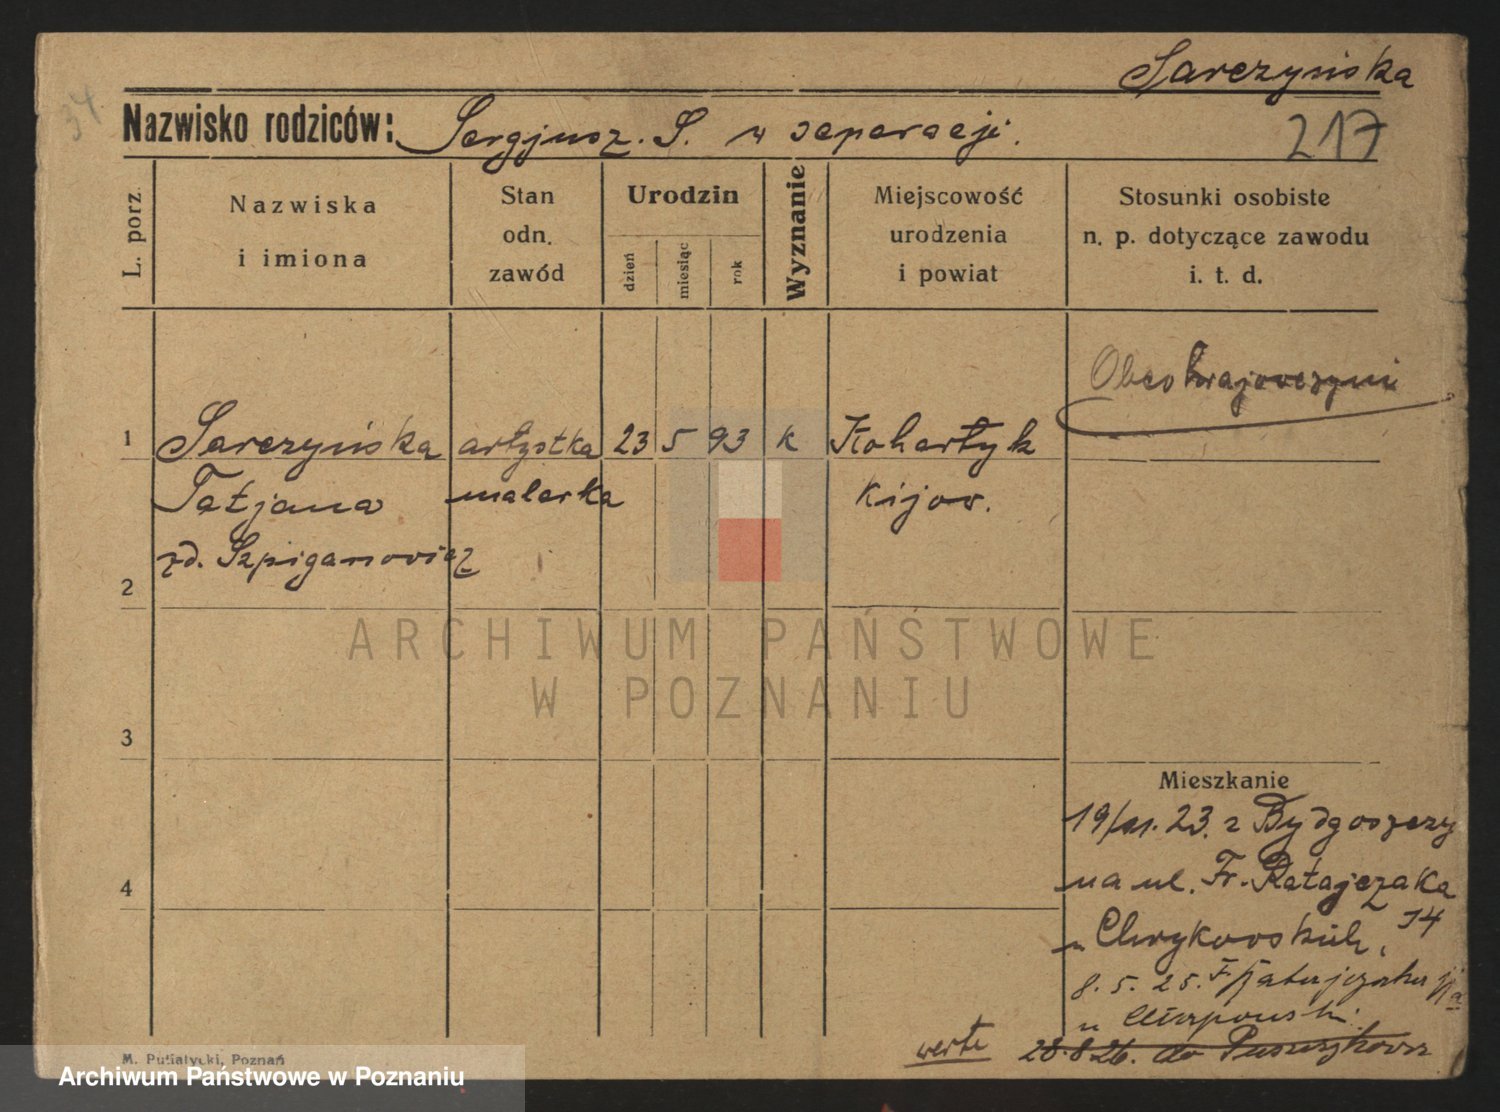 Sarczyńska
34.
Nazwisko rodziców: Sergjusz. S. w separacji.
217
L. porz.
Nazwiska
i imiona
Stan
odn.
zawód
Urodzin
dzień
miesiąc
rok
Wyznanie
Miejscowość
urodzenia
i powiat
Stosunki osobiste
n. p. dotyczące zawodu
i. t. d.
Obcokrajowczyni
1 Sarczyńska artystka 23 5 93 k Kohartyk
Tatjana malarka Kijow.
zd. Szpiganowicz
2
ARCHIWUM PAŃSTWOWE
W POZNANIU
3
Mieszkanie
19/ 23. z Bydgoszczy
4
na ul. Fr. Ratajczaka
34
u
8. 5. 25. F. Ratajczaka
u
verte
28.8.26. do
M. Putiatycki, Poznań
Archiwum Państwowe w Poznaniu